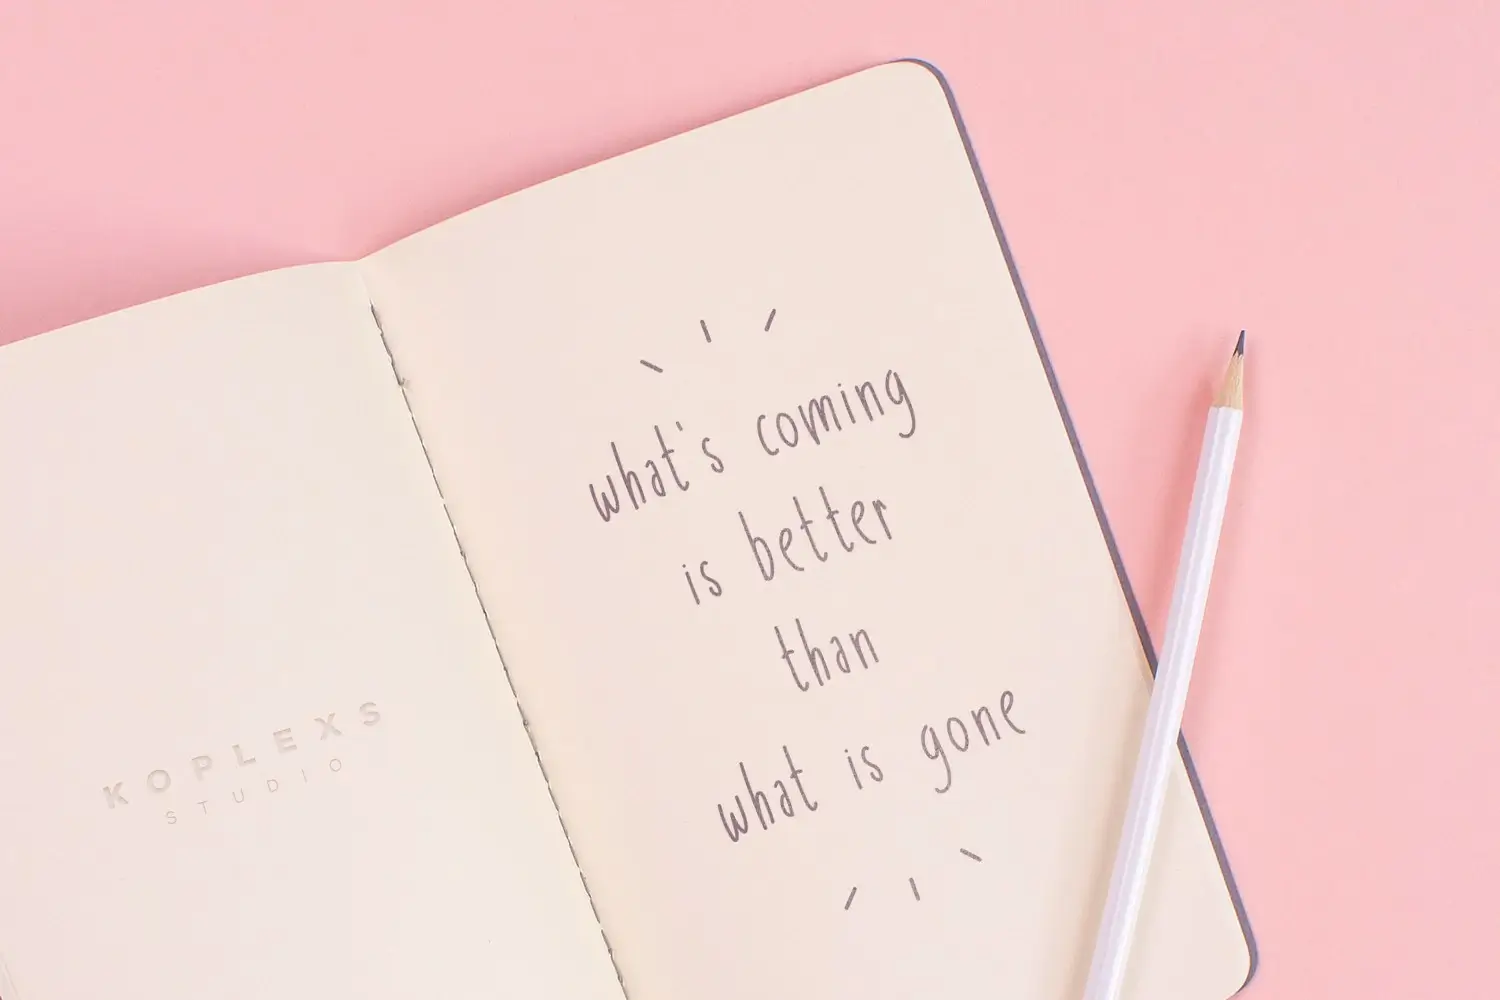 KOPLEXS
STUDIO
what's coming
is better
than
what is gone